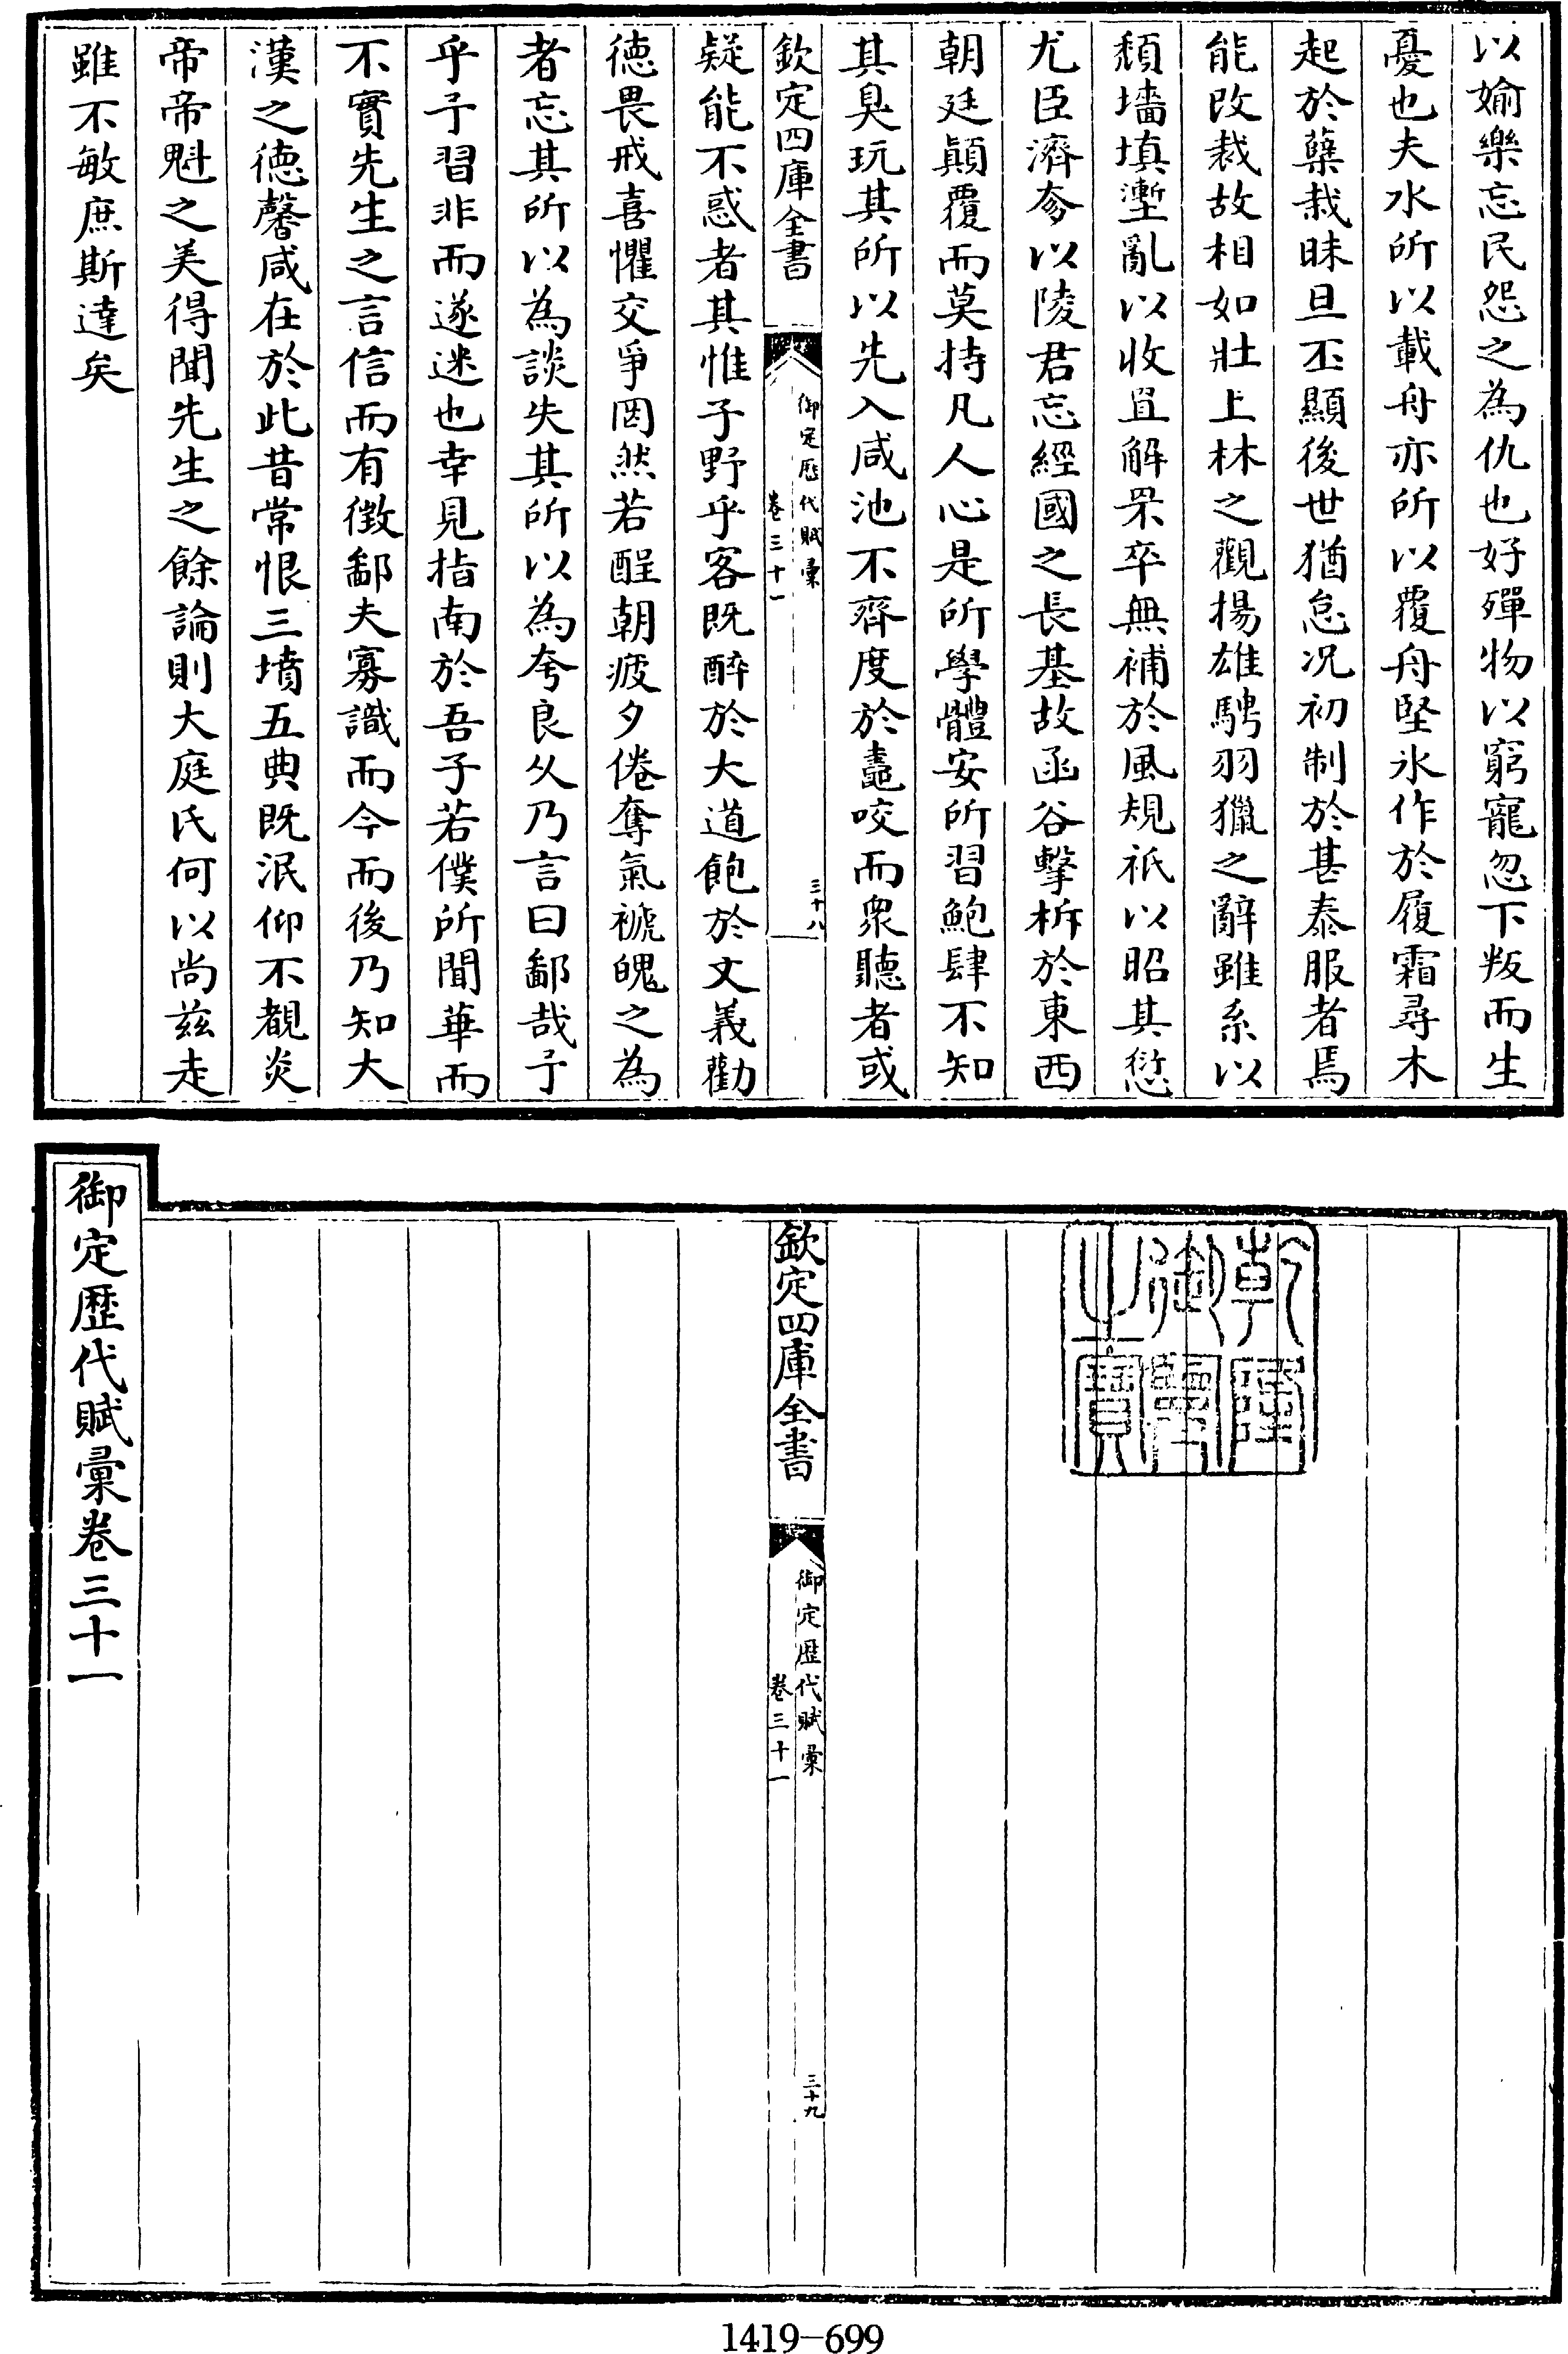 以媮樂忘民怨之為仇也好殫物以窮寵忽下叛而生
憂也夫水所以載舟亦所以覆舟堅氷作於履霜尋木
起於蘖栽昧旦丕顯後世猶怠况初制於甚泰服者焉
能改裁故相如壯上林之觀揚雄騁羽獵之辭雖系以
頽墻填壍亂以收罝解罘卒無補於風規祇以昭其愆
尤臣濟奓以陵君忘經國之長基故函谷擊柝於東西
朝廷顚覆而莫持凡人心是所學體安所習鮑肆不知
其臭玩其所以先入咸池不齊度於䵷咬而衆聽者或
欽定四庫全書
御定歷代賦彙
卷三十一
三十八
疑能不惑者其惟子野乎客既醉於大道飽於文義勸
徳畏戒喜懼交爭罔然若酲朝疲夕倦奪氣褫魄之為
者忘其所以為談失其所以為夸良乆乃言曰鄙哉予
乎予習非而遂迷也幸見指南於吾子若僕所聞華而
不實先生之言信而有徵鄙夫寡識而今而後乃知大
漢之徳馨咸在於此昔常恨三墳五典既泯仰不覩炎
帝帝魁之美得聞先生之餘論則大庭氏何以尚兹走
雖不敏庶斯達矣
乾隆
御覽
之寶
欽定四庫全書
御定歷代賦彙
卷三十一
三十九
御定歷代賦彙卷三十一
1419-699